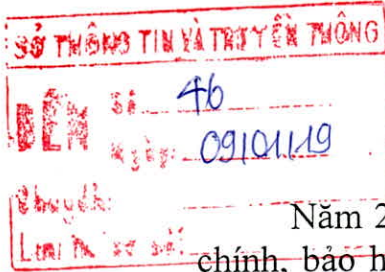 SỞ THÔNG TIN VÀ TRUYỀN THÔNG
ĐẾN Số 46
Ngày: 09/01/19
Chuyển:
Lưu hồ sơ số:
Năm 2
chính, bảo h